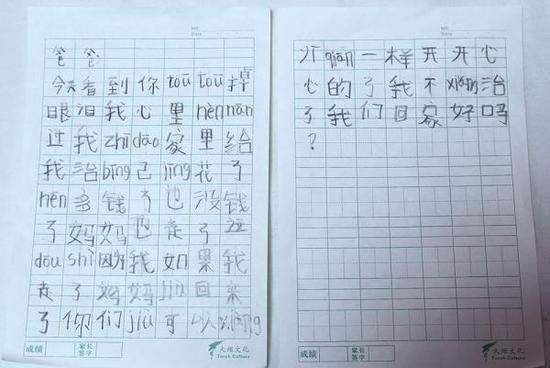 爸爸
今天看到你tōu tōu掉
眼泪我心里hěn nán
过我zhī dào家里给
我治bìng已jīng花了
hěn多钱了也没钱
了妈妈也走了这
dōu shì因为我如果我
走了妈妈jiù回来
了你们jiù可以
成绩 家长签字 火炬文化 Torch Culture
以qián一样开开心
心的了我不xiǎng治
了我们回家好吗
?
成绩 家长签字 火炬文化 Torch Culture